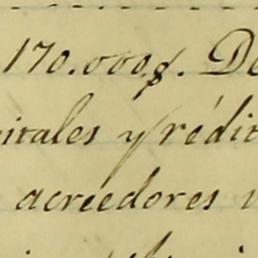 170.000$. De
itales y rédit
acreedores